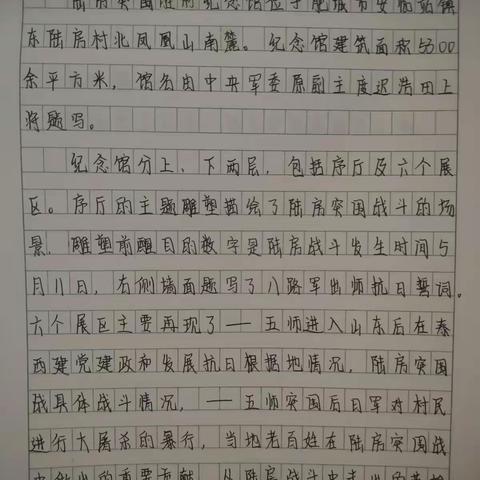 陆房突围胜利纪念馆位于肥城市安临站镇
东陆房村北凤凰山南麓。纪念馆建筑面积5300
余平方米，馆名由中央军委原副主席迟浩田上
将题写。
纪念馆分上、下两层，包括序厅及六个展
区。序厅的主题雕塑描绘了陆房突围战斗的场
景，雕塑前醒目的数字是陆房战斗发生时间5
月11日，右侧墙面题写了八路军出师抗日誓词。
六个展区主要再现了一一五师进入山东后在泰
西建党建政和发展抗日根据地情况，陆房突围
战具体战斗情况，一一五师突围后日军对村民
进行大屠杀的暴行，当地老百姓在陆房突围战
中做出的重要贡献，从陆房战斗中走出的